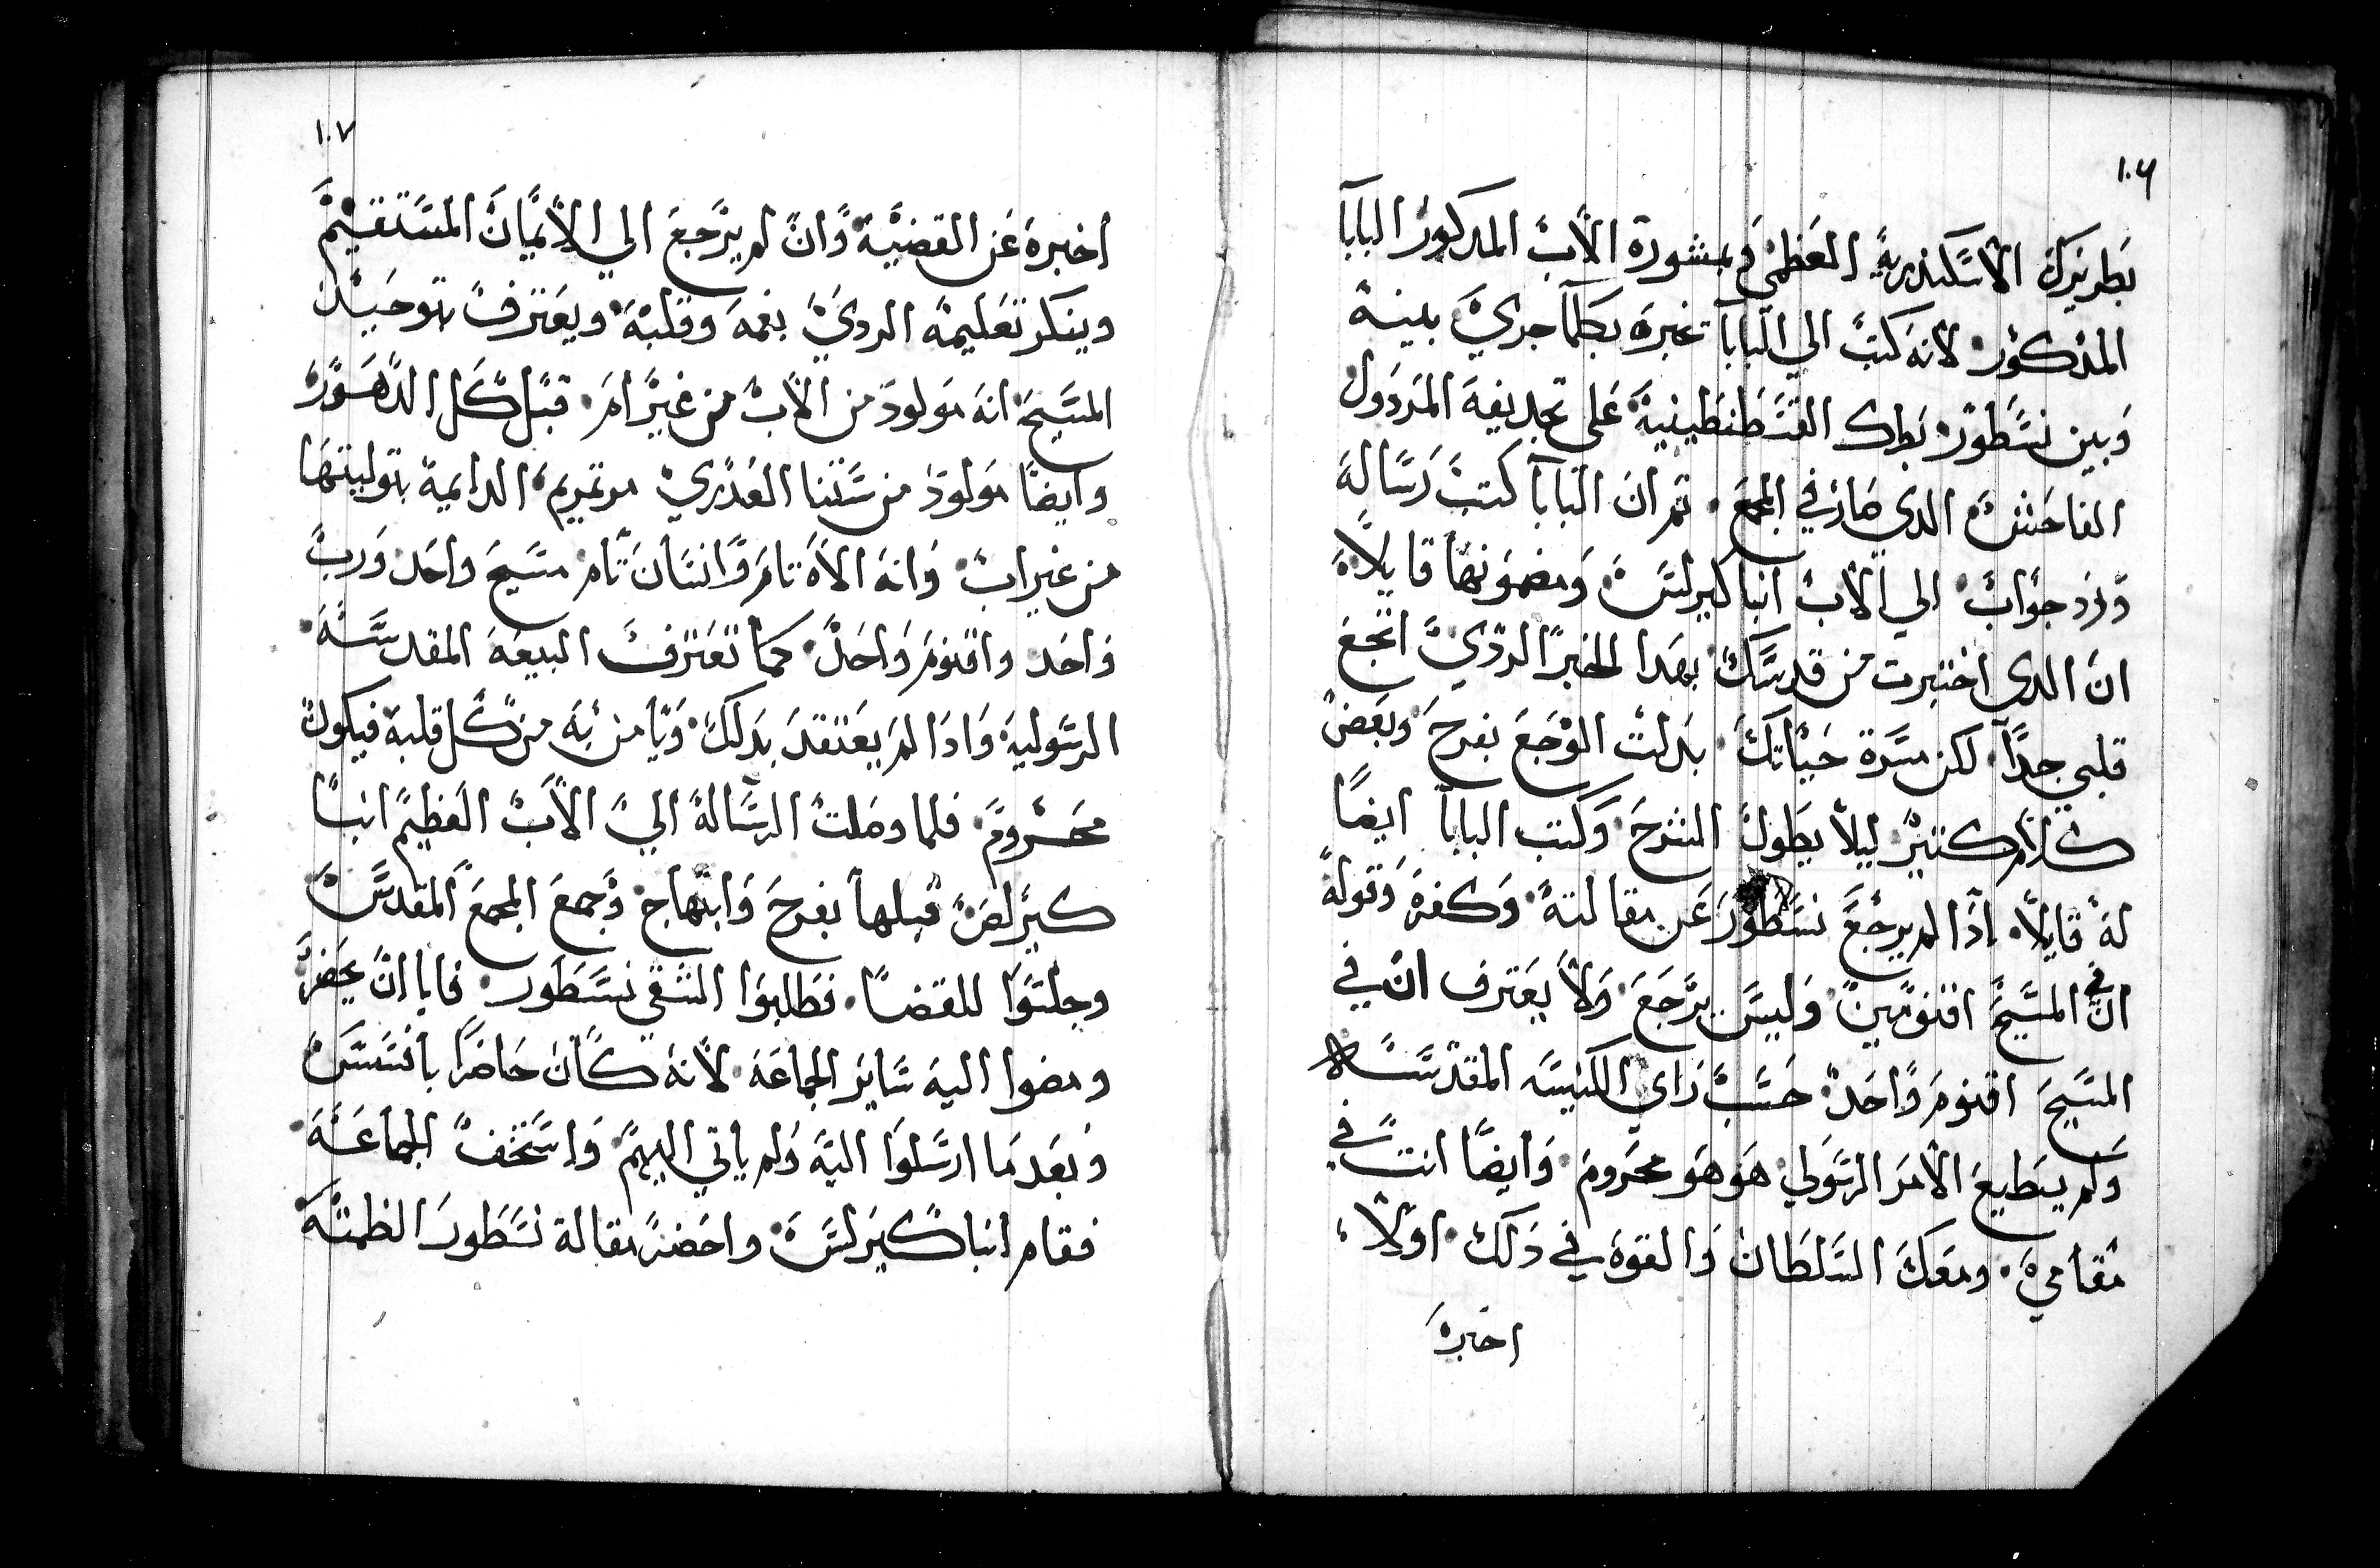 ١٠٦
بطريرك الاسكندرية العظمي بمشورة الاب المدكور البابا
المذكور لانه كتب الي البابا تخبره بكلما جري بينه
وبين نسطور بطرك القسطنطينية على تجديفه المردول
الفاحش الدي صار في المجمع ثم ان البابا كتب رسالة
ورد جواب الي الاب انبا كيرلس ومضمونها قايلا
ان الدي اختبرت من قدسك بهدا الخبر الردي اتجع
قلبي جدا لكن مسرة حياتك بدلت الوجع بفرح وبعض
كلام كتير ليلا يطول الشرح وكتب البابا ايضا
له قايلا ادا لم يرجع نسطور عن مقالته وكفره وقوله
ان في المسيح اقنومين وليس يرجع ولا يعترف ان في
المسيح اقنوم واحد حسب راي الكنيسه المقدسه
ولم يطيع الامر الرسولي هو هو محروم وايضا انت في
مقامي ومعك السلطان والقوة في دلك اولا
اخبره
١٠٧
اخبره عن القضية وان لم يرجع الي الايمان المستقيم
وينكر تعليمه الردي بفمه وقلبه ويعترف بتوحيد
المسيح انه مولود من الاب من غير ام قبل كل الدهور
وايضا مولود من ستنا العدري مرتمريم الدايمة بتوليتها
من غير اب وانه الاه تام وانسان تام مسيح واحد ورب
واحد واقنوم واحد كما تعترف البيعه المقدسه
الرسولية وادا لم يعتقد بدلك ويامن به من كل قلبه فيكون
محروم فلما وصلت الرسالة الي الاب العظيم انبا
كيرلص قبلها بفرح وابتهاج وجمع المجمع المقدس
وجلسوا للقضا فطلبوا الشقي نسطور فابا ان يحضر
ومضوا اليه ساير الجماعه لانه كان حاضرا بافسس
وبعد ما ارسلوا اليه ولم ياتي اليهم واستخف الجماعه
فقام انبا كيرلس واحضر مقالة نسطور الطمته